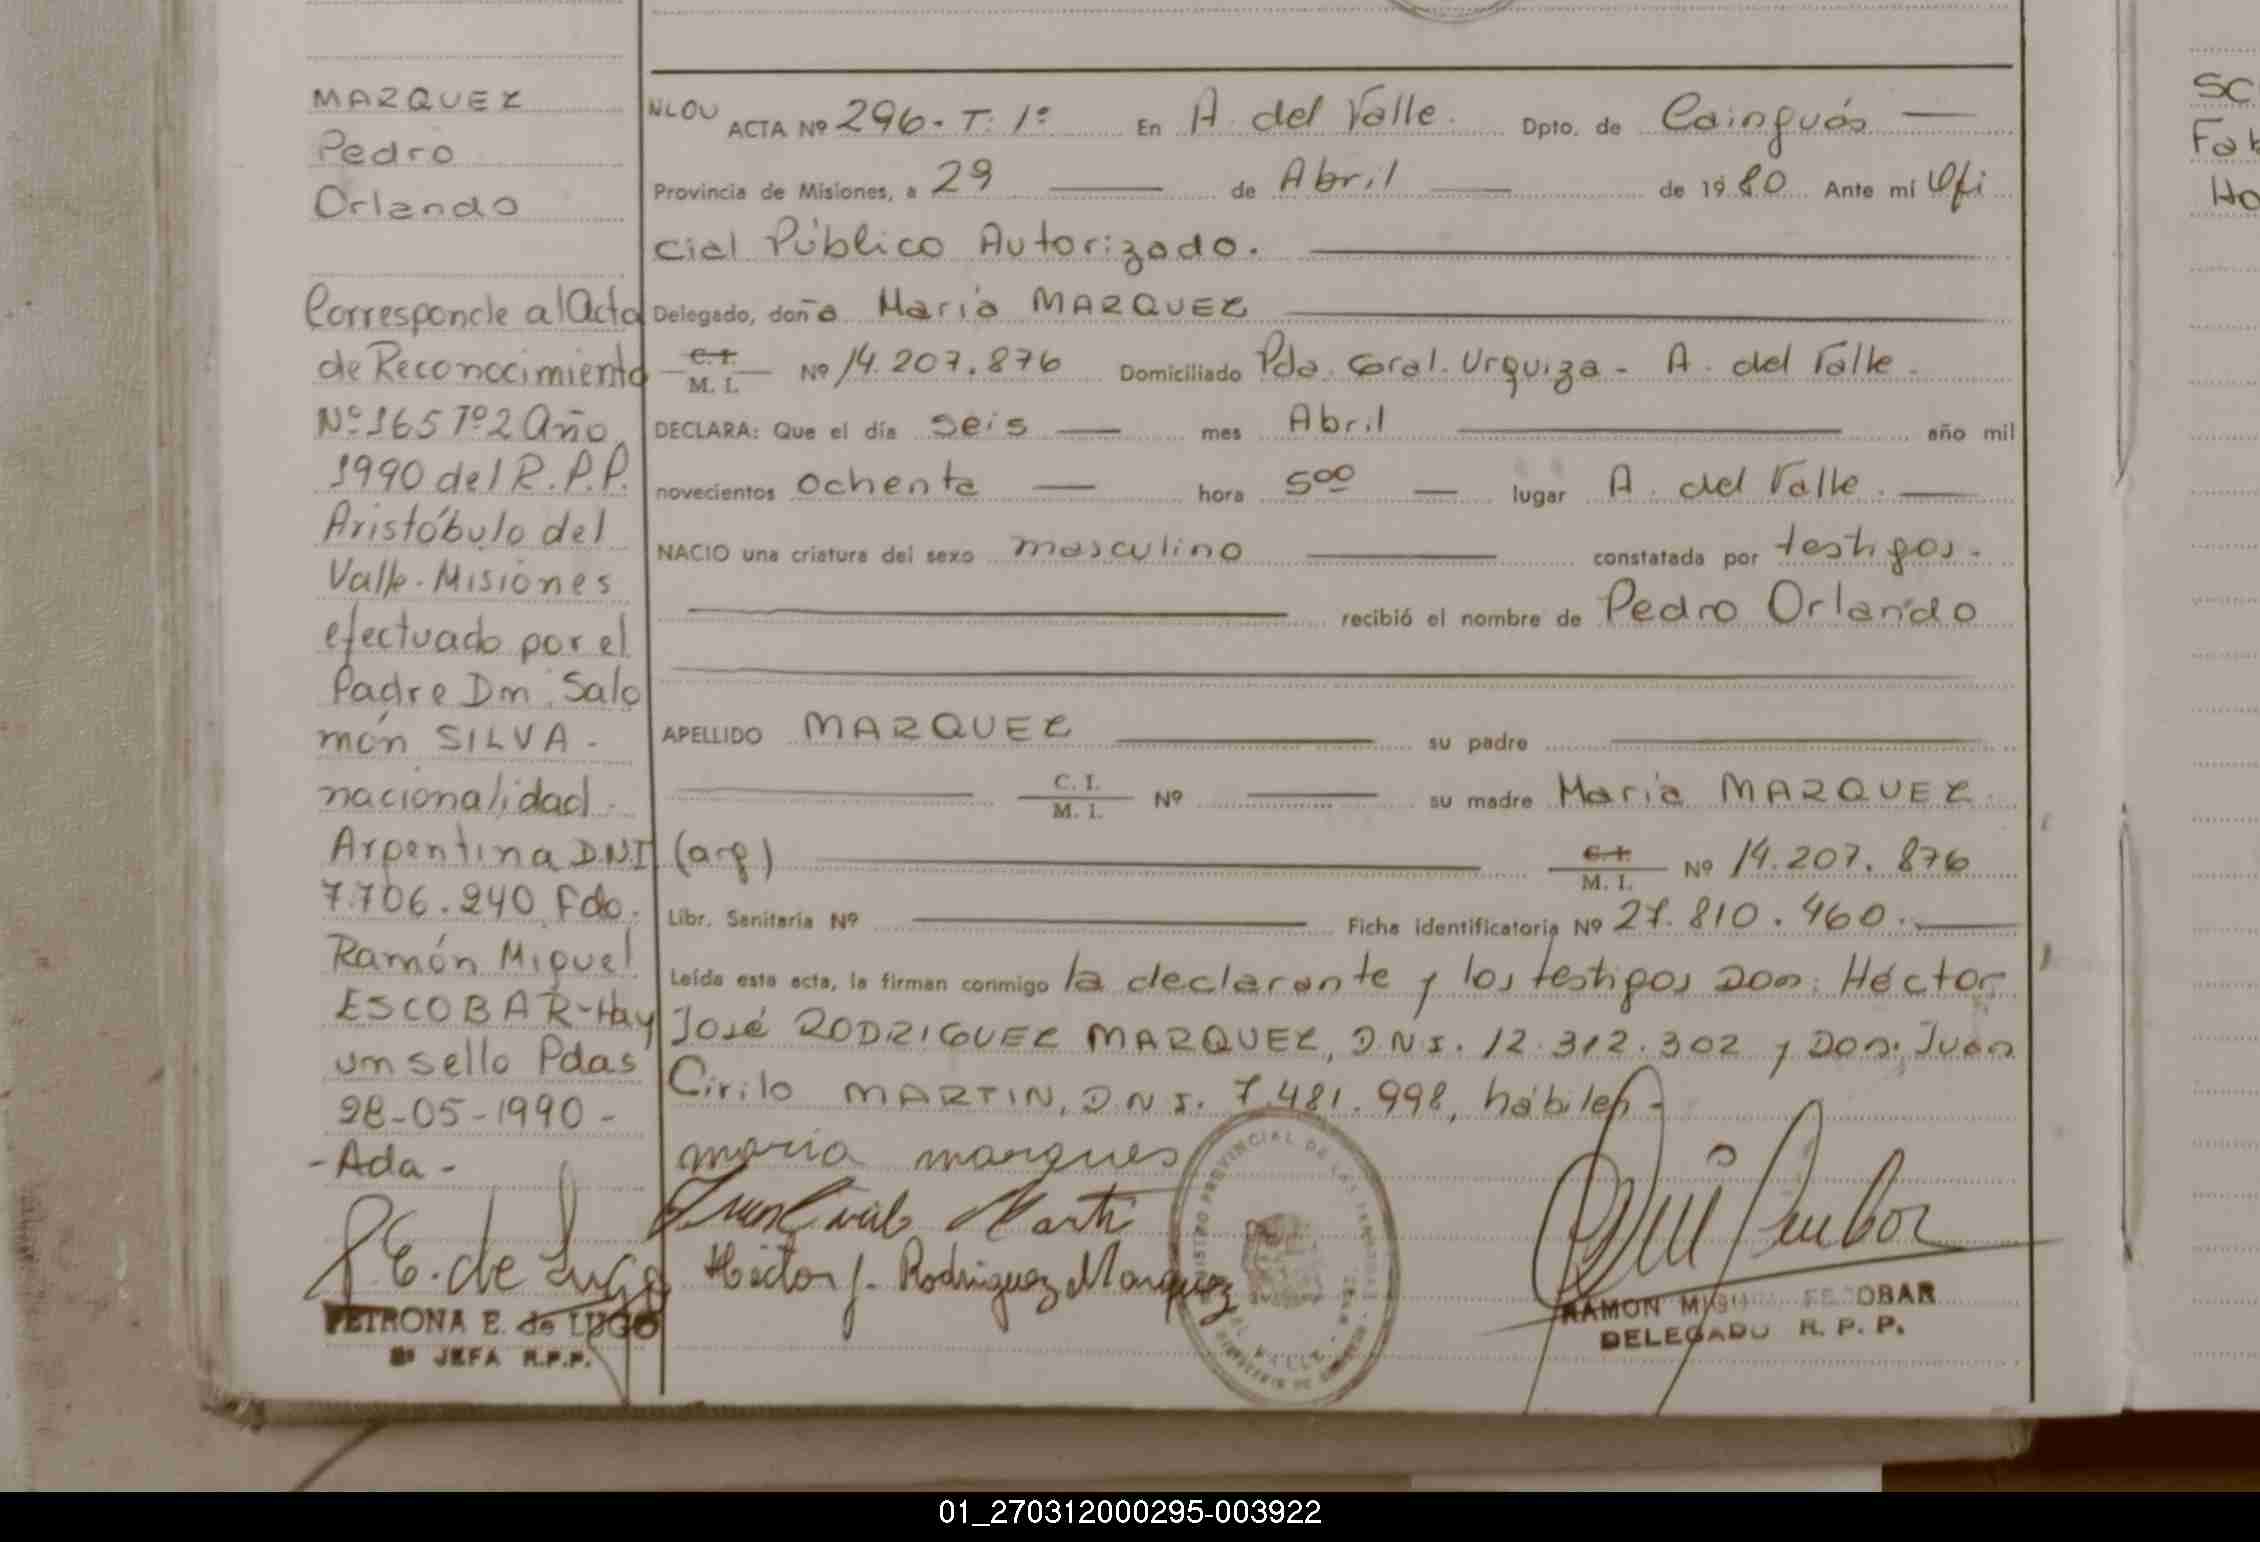 MARQUEZ
Pedro
Orlando
Corresponde al Acta
de Reconocimiento
Nº 165 Tº 2 Año
1990 del R.P.P.
Aristóbulo del
Valle - Misiones
efectuado por el
Padre Dn. Salo
món SILVA -
nacionalidad
Argentina D.N.I
7.706.240 Fdo.
Ramón Miguel
ESCOBAR - Hay
un sello Pdas
28-05-1990 -
- Ada -
P E. de Lugo
PETRONA E. de LUGO
JEFA R.P.P.
NLOU ACTA Nº 296 - T. 1º En A. del Valle. Dpto. de Cainguás
Provincia de Misiones, a 29 de Abril de 1980 Ante mi Ofi
cial Público Autorizado.
Delegado, doña María MARQUEZ
C. I. / M. I. Nº 14.207.876 Domiciliado Pda. Gral. Urquiza - A. del Valle -
DECLARA: Que el día seis mes Abril año mil
novecientos ochenta hora 5 00 lugar A. del Valle.
NACIO una criatura del sexo masculino constatada por testigos.
recibió el nombre de Pedro Orlando
APELLIDO MARQUEZ su padre
C. I. / M. I. Nº su madre María MARQUEZ
(arg) C. I. / M. I. Nº 14.207.876
Libr. Sanitaria Nº Ficha identificatoria Nº 27.810.460.
Leída esta acta, la firman conmigo la declarante y los testigos Don: Héctor
José RODRIGUEZ MARQUEZ, D.N.I. 12.312.302 y Don: Juan
Cirilo MARTIN, D.N.I. 7.481.998, hábiles -
maria marques
Juan Cirilo Marti
Héctor J. Rodriguez Marquez
REGISTRO PROVINCIAL DE LAS PERSONAS
DEL VALLE
RAMON MIGUEL ESCOBAR
DELEGADO R. P. P.
SC
Fab
Ho
01_270312000295-003922